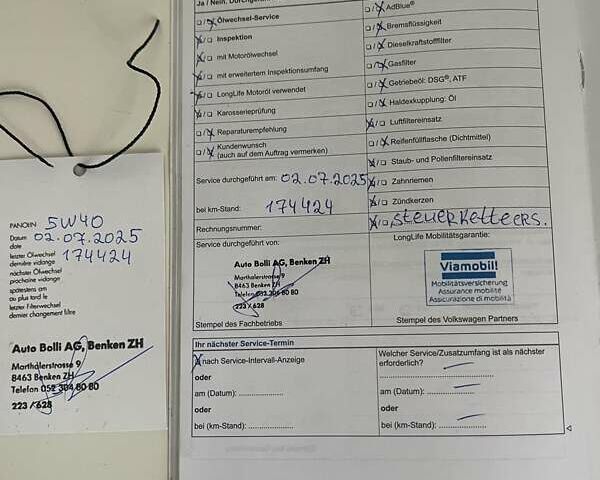 PANOLIN 5W40
Datum
date 02.07.2025
letzter Ölwechsel 174424
dernière vidange
nächster Ölwechsel
prochaine vidange
spätestens am
au plus tard le
letzter Filterwechsel
dernier changement filtre
Auto Bolli AG, Benken ZH
Marthalerstrasse 9
8463 Benken ZH
Telefon 052 304 80 80
223 / 628
Ölwechsel-Service
Inspektion
mit Motorölwechsel
mit erweitertem Inspektionsumfang
LongLife Motoröl verwendet
Karosserieprüfung
Reparaturempfehlung
Kundenwunsch
(auch auf dem Auftrag vermerken)
Service durchgeführt am: 02.07.2025
bei km-Stand: 174424
Rechnungsnummer:
Service durchgeführt von:
Auto Bolli AG, Benken ZH
Marthalerstrasse 9
8463 Benken ZH
Telefon 052 304 80 80
223 / 628
Stempel des Fachbetriebs
AdBlue®
Bremsflüssigkeit
Dieselkraftstofffilter
Gasfilter
Getriebeöl: DSG®, ATF
Haldexkupplung: Öl
Luftfiltereinsatz
Reifenfüllflasche (Dichtmittel)
Staub- und Pollenfiltereinsatz
Zahnriemen
Zündkerzen
LongLife Mobilitätsgarantie:
Viamobil!
Mobilitätsversicherung
Assurance mobilité
Assicurazione di mobilità
Stempel des Volkswagen Partners
Ihr nächster Service-Termin
nach Service-Intervall-Anzeige
oder
am (Datum): ..................
oder
bei (km-Stand): ..................
Welcher Service/Zusatzumfang ist als nächster
erforderlich?
am (Datum): ..................
oder
bei (km-Stand): ..................